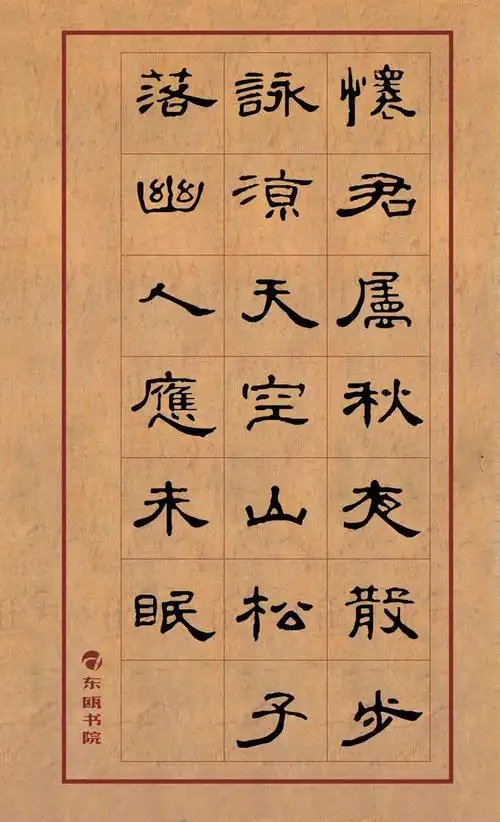 懷君屬秋夜散步
詠涼天空山松子
落幽人應未眠
东瓯书院